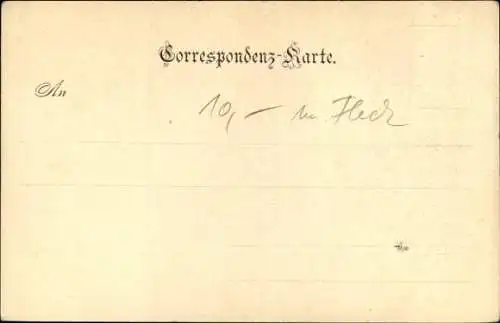 Correspondenz-Karte.
An
10,— m. Fleck